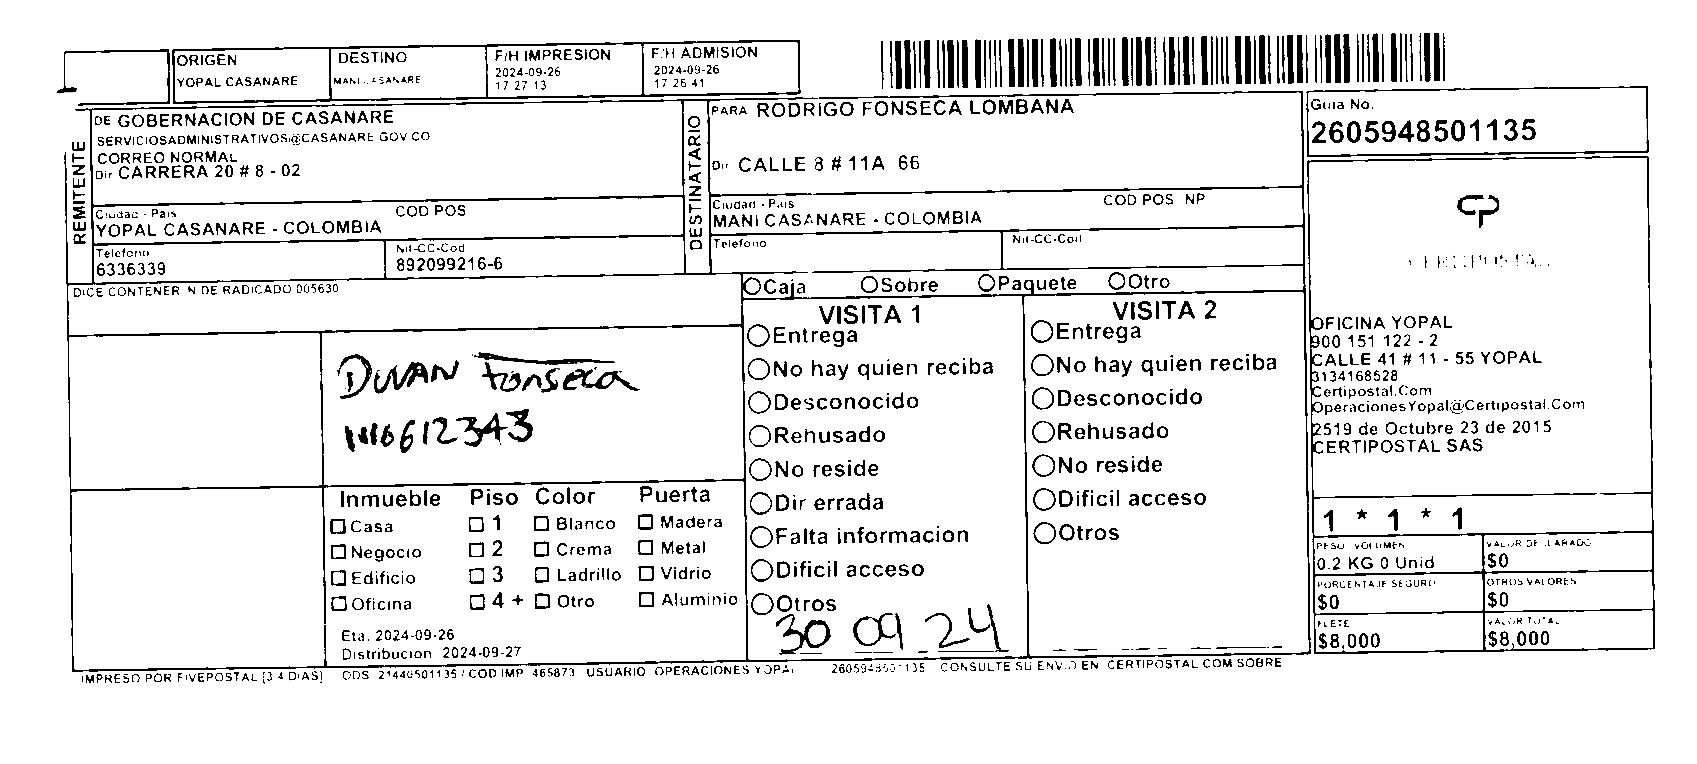 ORIGEN
YOPAL CASANARE
DESTINO
MANI CASANARE
F/H IMPRESION
2024-09-26
17 27 13
F/H ADMISION
2024-09-26
17 26 41
REMITENTE
DE GOBERNACION DE CASANARE
SERVICIOSADMINISTRATIVOS@CASANARE GOV CO
CORREO NORMAL
Dir CARRERA 20 # 8 - 02
Ciudad - Pais
COD POS
YOPAL CASANARE - COLOMBIA
Telefono
6336339
Nit-CC-Cod
892099216-6
DESTINATARIO
PARA RODRIGO FONSECA LOMBANA
Dir CALLE 8 # 11A 66
Ciudad - Pais
COD POS NP
MANI CASANARE - COLOMBIA
Telefono
Nit-CC-Cod
Guia No.
2605948501135
CERTIPOSTAL
OFICINA YOPAL
900 151 122 - 2
CALLE 41 # 11 - 55 YOPAL
3134168528
Certipostal.Com
OperacionesYopal@Certipostal.Com
2519 de Octubre 23 de 2015
CERTIPOSTAL SAS
1 * 1 * 1
PESO VOLUMEN
0.2 KG 0 Unid
VALOR DECLARADO
$0
PORCENTAJE SEGURO
$0
OTROS VALORES
$0
FLETE
$8,000
VALOR TOTAL
$8,000
DICE CONTENER N DE RADICADO 005630
Caja Sobre Paquete Otro
VISITA 1
Entrega
No hay quien reciba
Desconocido
Rehusado
No reside
Dir errada
Falta informacion
Dificil acceso
Otros
30 09 24
VISITA 2
Entrega
No hay quien reciba
Desconocido
Rehusado
No reside
Dificil acceso
Otros
DUVAN Fonseca
1116612343
Inmueble Piso Color Puerta
Casa 1 Blanco Madera
Negocio 2 Crema Metal
Edificio 3 Ladrillo Vidrio
Oficina 4 + Otro Aluminio
Eta. 2024-09-26
Distribucion 2024-09-27
IMPRESO POR FIVEPOSTAL [3 4 DIAS] ODS 21440501135 / COD IMP 465873 USUARIO OPERACIONES YOPAL 2605948501135 CONSULTE SU ENVIO EN CERTIPOSTAL COM SOBRE